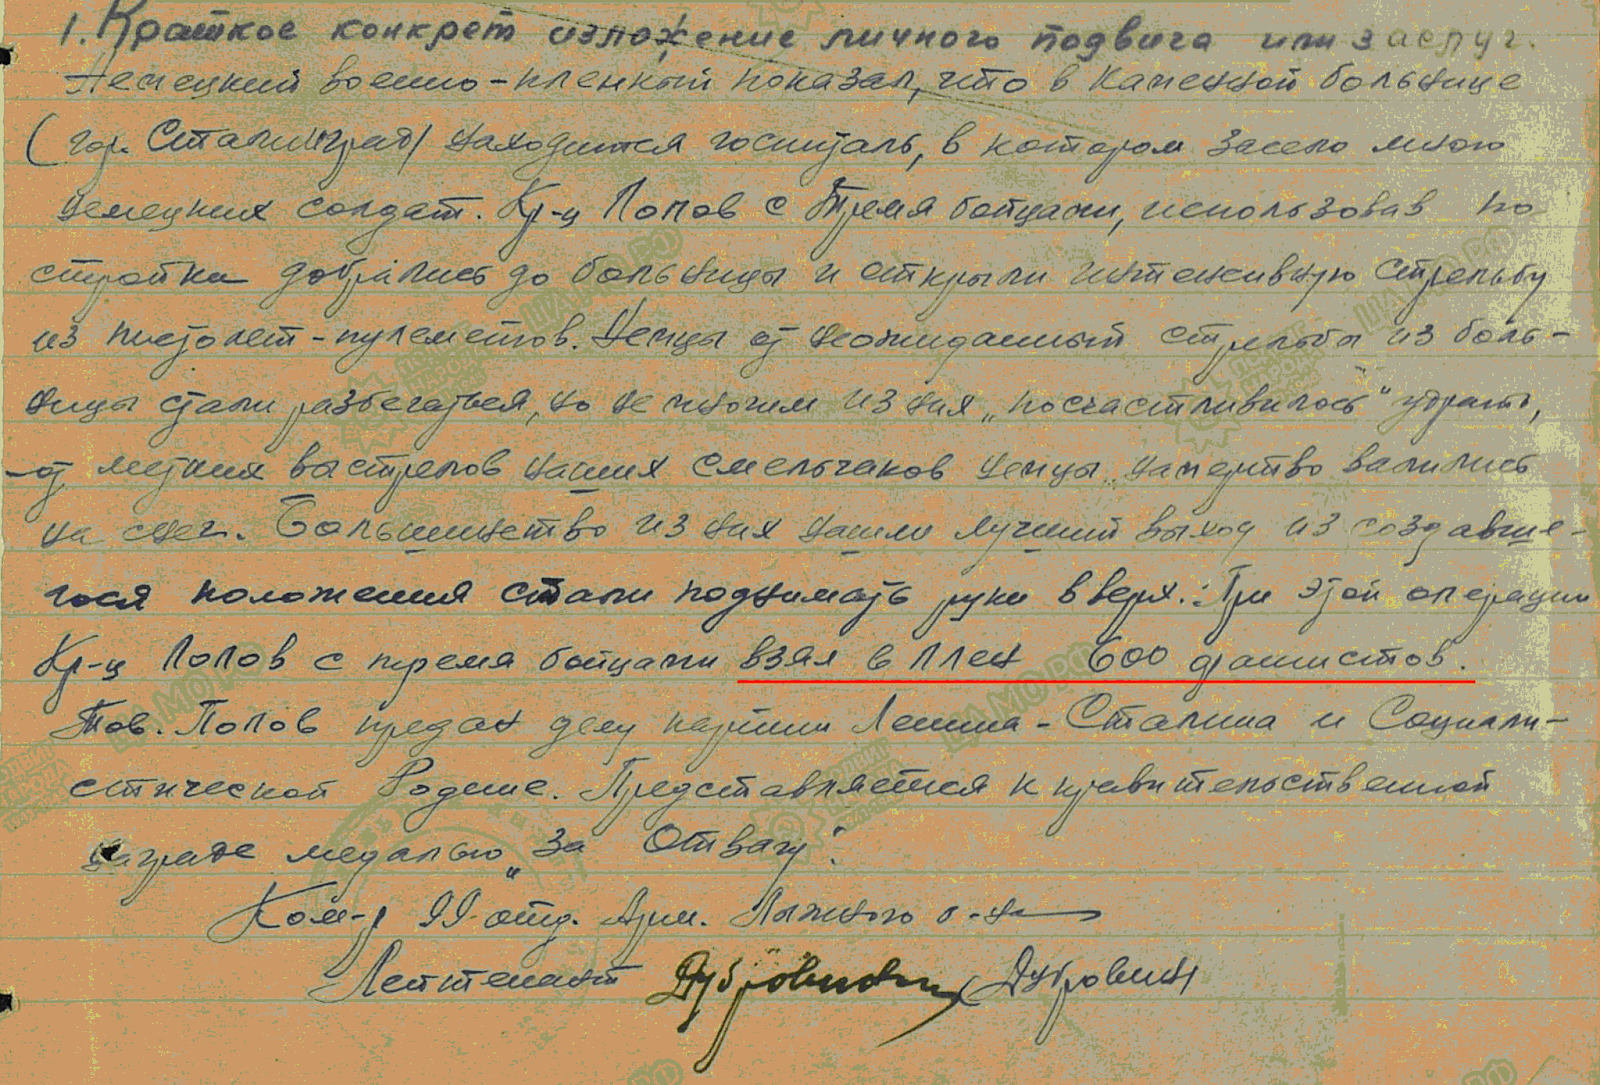 1. Краткое конкрет изложение личного подвига или заслуг.
Немецкий военно-пленный показал, что в каменной больнице
(гор. Сталинград) находится госпиталь, в котором засело много
немецких солдат. Кр-ц Попов с тремя бойцами, использовав по
стройки добрались до больницы и открыли интенсивную стрельбу
из пистолет-пулеметов. Немцы от неожиданный стрельбы из боль-
ницы стали разбегаться, но не многим из них „посчастливилось" удрать,
-от метких выстрелов наших смельчаков немцы намертво валились
на снег. Большинство из них нашли лучший выход из создавше-
гося положения стали поднимать руки вверх. При этой операции
Кр-ц Попов с тремя бойцами взял в плен 600 фашистов.
Тов. Попов предан делу партии Ленина-Сталина и Социали-
стической Родине. Представляется к правительственной
награде медалью „За Отвагу".
Ком-р 99 отд. Арм. Лыжного б-на
Лейтенант (Дубровин)
ЦАМО РФ
ПОДВИГ НАРОДА